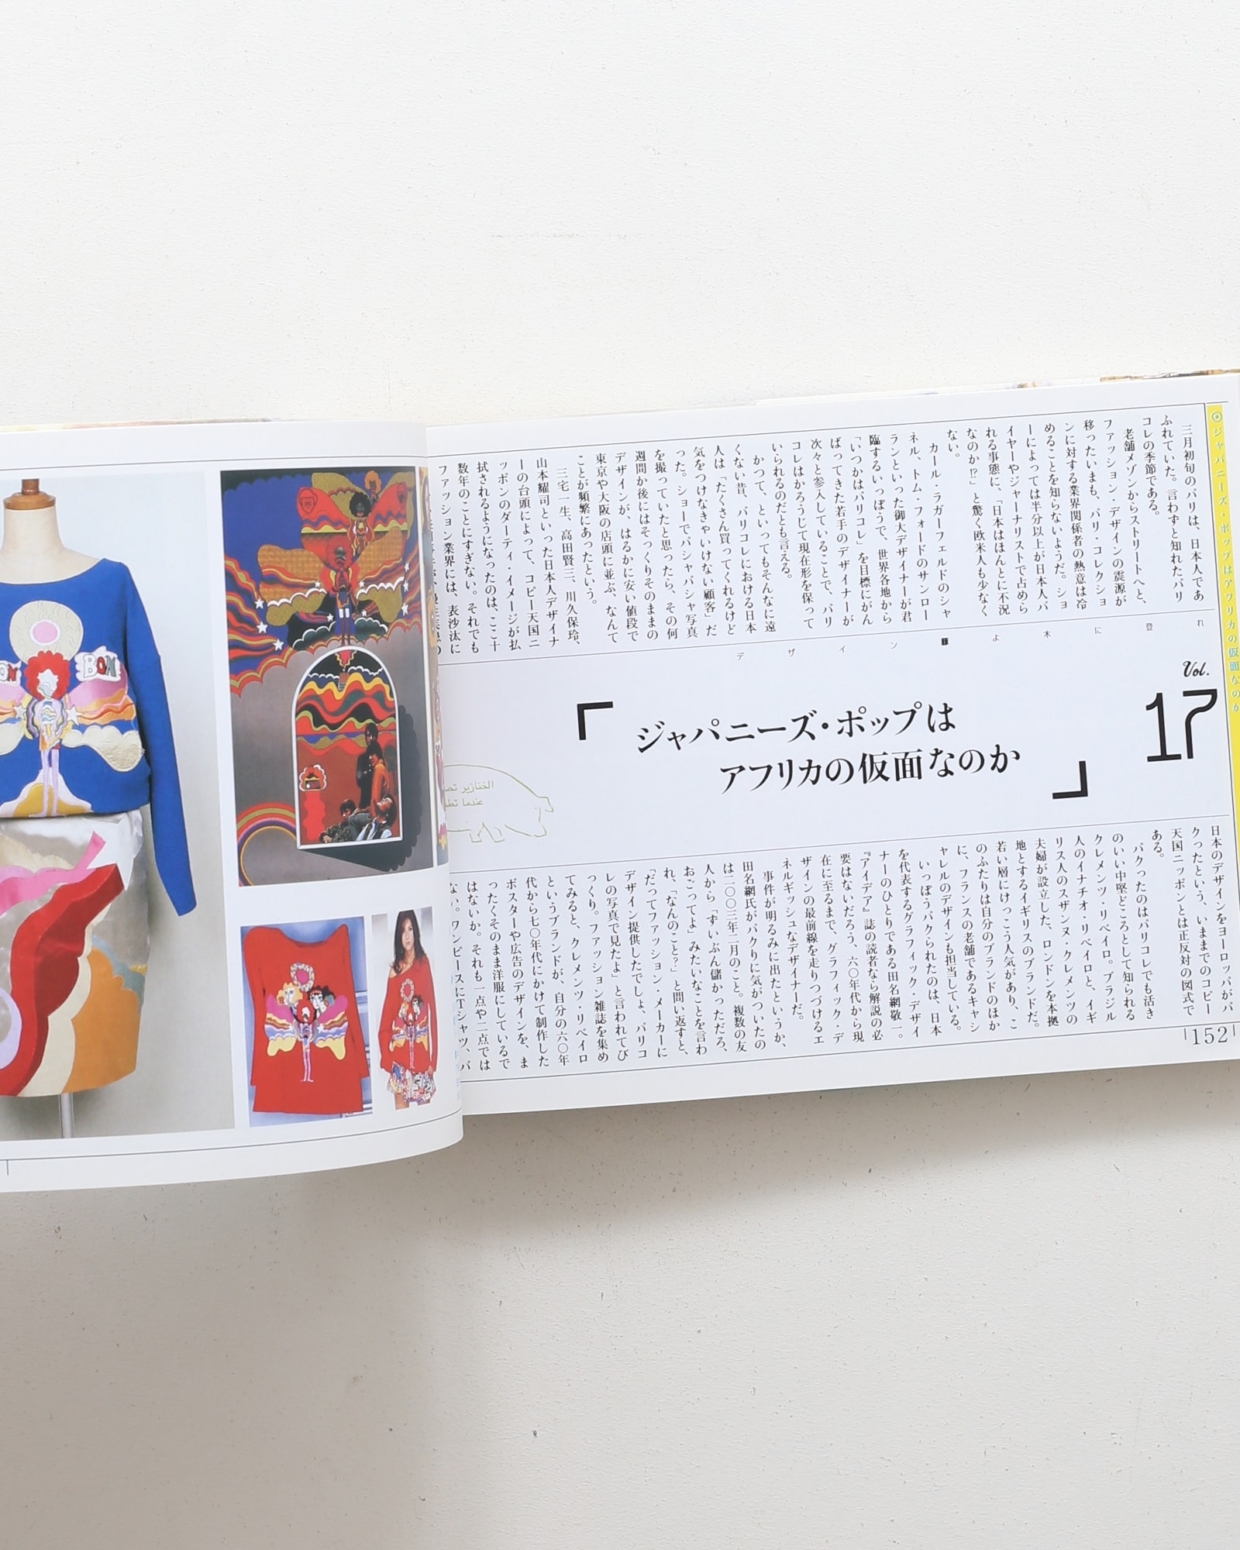 ジャパニーズ・ポップはアフリカの仮面なのか
三月初旬のパリは、日本人であ
ふれていた。言わずと知れたパリ
コレの季節である。
老舗メゾンからストリートへと、
ファッション・デザインの震源が
移ったいまも、パリ・コレクショ
ンに対する業界関係者の熱意は冷
めることを知らないようだ。ショ
ーによっては半分以上が日本人バ
イヤーやジャーナリストで占めら
れる事態に、「日本はほんとに不況
なのか!?」と驚く欧米人も少なく
ない。
カール・ラガーフェルドのシャ
ネル、トム・フォードのサンロー
ランといった御大デザイナーが君
臨するいっぽうで、世界各地から
「いつかはパリコレ」を目標にがん
ばってきた若手のデザイナーが
次々と参入していることで、パリ
コレはかろうじて現在形を保って
いられるのだとも言える。
かつて、といってもそんなに遠
くない昔、パリコレにおける日本
人は「たくさん買ってくれるけど
気をつけなきゃいけない顧客」だ
った。ショーでバシャバシャ写真
を撮っていたと思ったら、その何
週間か後にはそっくりそのままの
デザインが、はるかに安い値段で
東京や大阪の店頭に並ぶ、なんて
ことが頻繁にあったという。
三宅一生、高田賢三、川久保玲、
山本耀司といった日本人デザイナ
ーの台頭によって、コピー天国ニ
ッポンのダーティ・イメージが払
拭されるようになったのは、ここ十
数年のことにすぎない。それでも
ファッション業界には、表沙汰に
れ
登
に
木
よ
豚
ン
イ
ザ
デ
Vol.
17
「ジャパニーズ・ポップは
アフリカの仮面なのか」
الخنازير
عندما
日本のデザインをヨーロッパがパ
クったという、いままでのコピー
天国ニッポンとは正反対の図式で
ある。
パクったのはパリコレでも活き
のいい中堅どころとして知られる
クレメンツ・リベイロ。ブラジル
人のイナチオ・リベイロと、イギ
リス人のスザンヌ・クレメンツの
夫婦が設立した、ロンドンを本拠
地とするイギリスのブランドだ。
若い層にけっこう人気があり、こ
のふたりは自分のブランドのほか
に、フランスの老舗であるキャシ
ャレルのデザインも担当している。
いっぽうパクられたのは、日本
を代表するグラフィック・デザイ
ナーのひとりである田名網敬一。
『アイデア』誌の読者なら解説の必
要はないだろう、六〇年代から現
在に至るまで、グラフィック・デ
ザインの最前線を走りつづけるエ
ネルギッシュなデザイナーだ。
事件が明るみに出たというか、
田名網氏がパクりに気がついたの
は二〇〇三年一月のこと。複数の友
人から「ずいぶん儲かっただろ、
おごってよ」みたいなことを言わ
れ、「なんのこと?」と問い返すと、
「だってファッション・メーカーに
デザイン提供したでしょ、パリコ
レの写真で見たよ」と言われてび
っくり。ファッション雑誌を集め
てみると、クレメンツ・リベイロ
というブランドが、自分の六〇年
代から七〇年代にかけて制作した
ポスターや広告のデザインを、ま
ったくそのまま洋服にしているで
はないか。それも一点や二点では
ない。ワンピースにTシャツ、パ
152
BON